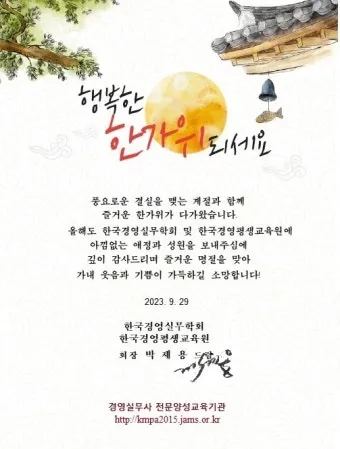 행복한
한가위 되세요
풍요로운 결실을 맺는 계절과 함께
즐거운 한가위가 다가왔습니다.
올해도 한국경영실무학회 및 한국경영평생교육원에
아낌없는 애정과 성원을 보내주심에
깊이 감사드리며 즐거운 명절을 맞아
가내 웃음과 기쁨이 가득하길 소망합니다!
2023. 9. 29
한국경영실무학회
한국경영평생교육원
회장 박 재 용 드림
경영실무사 전문양성교육기관
http://kmpa2015.jams.or.kr